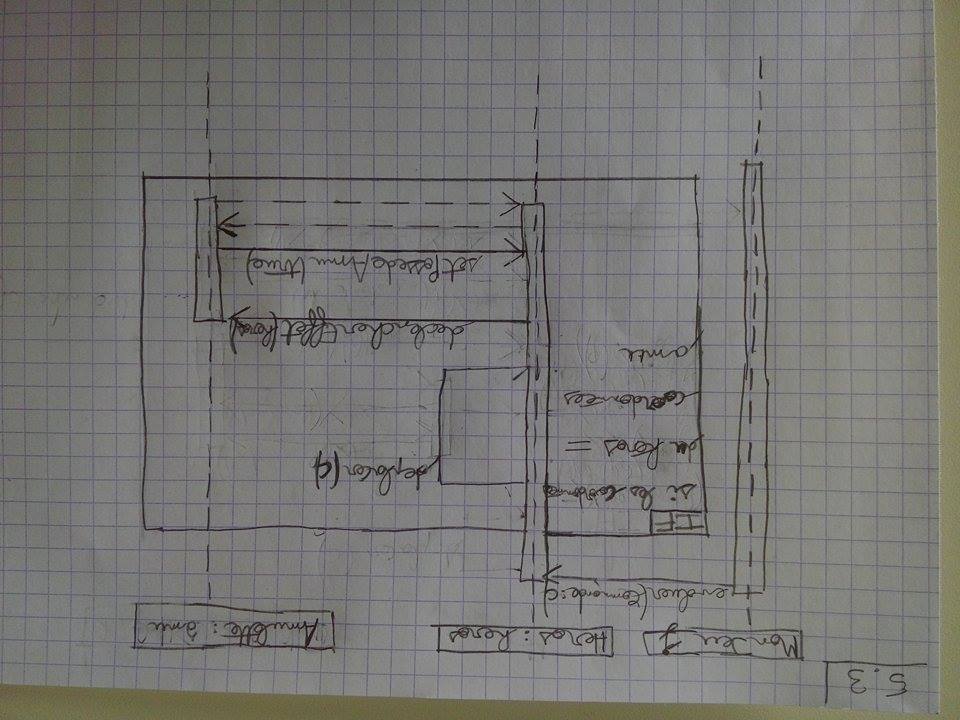 5.3
Mon Jeu
Heros : heros
Amulette : amu
evoluer(Commande:c)
IF
si les coordonnées
du heros =
coordonnées
amu
deplacer(c)
declencherEffet(heros)
setPossedeAmu(true)